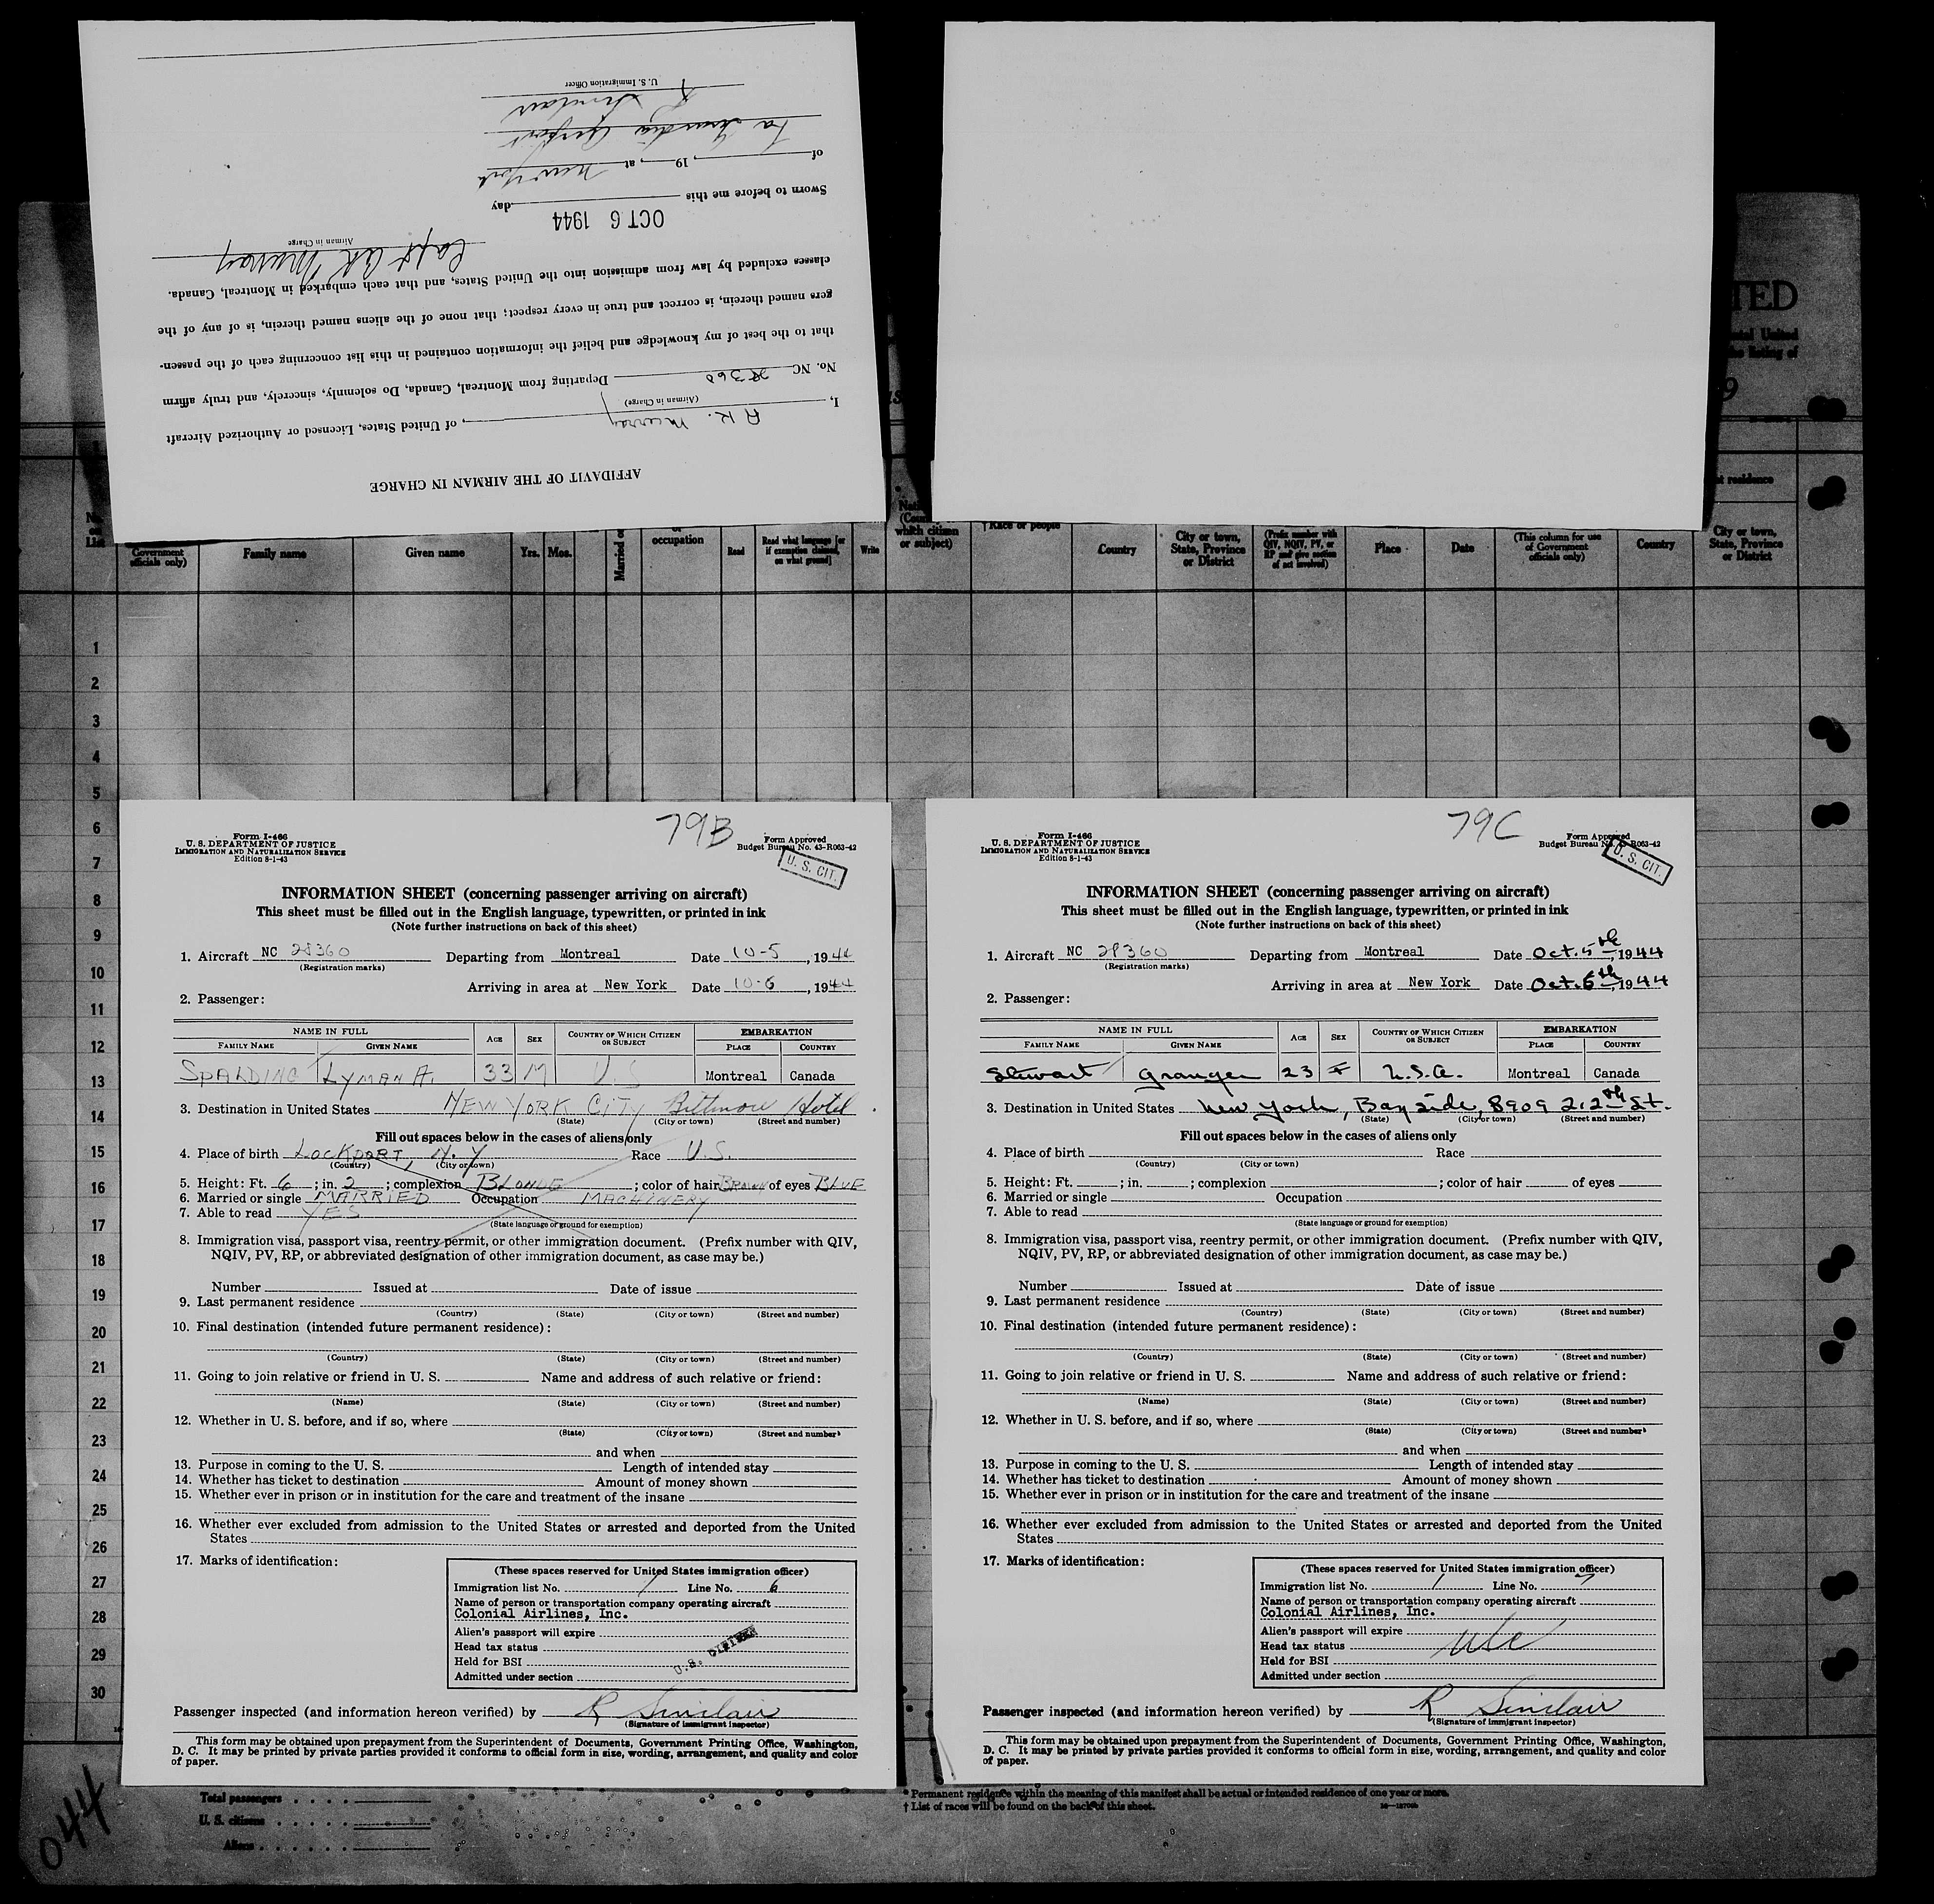 AFFIDAVIT OF THE AIRMAN IN CHARGE
I, A K. Murray, of United States, Licensed or Authorized Aircraft
(Airman in Charge)
No. NC 28360 Departing from Montreal, Canada, Do solemnly, sincerely, and truly affirm
that to the best of my knowledge and belief the information contained in this list concerning each of the passen-
gers named therein, is correct and true in every respect; that none of the aliens named therein, is of any of the
classes excluded by law from admission into the United States, and that each embarked in Montreal, Canada.
Capt AK Murray
Airman in Charge
OCT 6 1944
Sworn to before me this day
of , 19 , at New York
La Guardia Airport
R Sinclair
U. S. Immigration Officer
TED
9
residence
Government
officials only)
Family name
Given name
Yrs. Mos.
Married
occupation
Read
Read what language [or
if exemption claimed,
on what ground]
Write
which citizen
or subject)
† Race or people
Country
City or town,
State, Province
or District
(Prefix number with
QIV, NQIV, PV, or
RP and give section
of act involved)
Place
Date
(This column for use
of Government
officials only)
Country
City or town,
State, Province
or District
1
2
3
4
5
6
7
8
9
10
11
12
13
14
15
16
17
18
19
20
21
22
23
24
25
26
27
28
29
30
79B
Form I-466
U. S. DEPARTMENT OF JUSTICE
IMMIGRATION AND NATURALIZATION SERVICE
Edition 8-1-43
Form Approved
Budget Bureau No. 43-R063-42
U. S. CIT.
INFORMATION SHEET (concerning passenger arriving on aircraft)
This sheet must be filled out in the English language, typewritten, or printed in ink
(Note further instructions on back of this sheet)
1. Aircraft NC 28360 Departing from Montreal Date 10-5, 1944
(Registration marks)
Arriving in area at New York Date 10-6, 1944
2. Passenger:
NAME IN FULL AGE SEX COUNTRY OF WHICH CITIZEN OR SUBJECT EMBARKATION
FAMILY NAME GIVEN NAME PLACE COUNTRY
SPALDING LYMAN A. 33 M U.S Montreal Canada
3. Destination in United States NEW YORK CITY Biltmore Hotel
(State) (City or town) (Street and number)
Fill out spaces below in the cases of aliens only
4. Place of birth LOCKPORT, N.Y Race U.S.
(Country) (City or town)
5. Height: Ft. 6; in. 2; complexion BLONDE; color of hair BROWN of eyes BLUE
6. Married or single MARRIED Occupation MACHINERY
7. Able to read YES
(State language or ground for exemption)
8. Immigration visa, passport visa, reentry permit, or other immigration document. (Prefix number with QIV,
NQIV, PV, RP, or abbreviated designation of other immigration document, as case may be.)
Number Issued at Date of issue
9. Last permanent residence
(Country) (State) (City or town) (Street and number)
10. Final destination (intended future permanent residence):
(Country) (State) (City or town) (Street and number)
11. Going to join relative or friend in U. S. Name and address of such relative or friend:
(Name) (State) (City or town) (Street and number)
12. Whether in U. S. before, and if so, where
(State) (City or town) (Street and number)
and when
13. Purpose in coming to the U. S. Length of intended stay
14. Whether has ticket to destination Amount of money shown
15. Whether ever in prison or in institution for the care and treatment of the insane
16. Whether ever excluded from admission to the United States or arrested and deported from the United
States
17. Marks of identification:
(These spaces reserved for United States immigration officer)
Immigration list No. 1 Line No. 6
Name of person or transportation company operating aircraft
Colonial Airlines, Inc.
Alien's passport will expire
Head tax status
Held for BSI
Admitted under section
U.S. CITIZEN
Passenger inspected (and information hereon verified) by R Sinclair
(Signature of immigrant inspector)
This form may be obtained upon prepayment from the Superintendent of Documents, Government Printing Office, Washington,
D. C. It may be printed by private parties provided it conforms to official form in size, wording, arrangement, and quality and color
of paper.
79C
Form I-466
U. S. DEPARTMENT OF JUSTICE
IMMIGRATION AND NATURALIZATION SERVICE
Edition 8-1-43
Form Approved
Budget Bureau No. 43-R063-42
U. S. CIT.
INFORMATION SHEET (concerning passenger arriving on aircraft)
This sheet must be filled out in the English language, typewritten, or printed in ink
(Note further instructions on back of this sheet)
1. Aircraft NC 28360 Departing from Montreal Date Oct. 5th, 1944
(Registration marks)
Arriving in area at New York Date Oct. 6th, 1944
2. Passenger:
NAME IN FULL AGE SEX COUNTRY OF WHICH CITIZEN OR SUBJECT EMBARKATION
FAMILY NAME GIVEN NAME PLACE COUNTRY
Stewart Granger 23 F U.S.A. Montreal Canada
3. Destination in United States New York, Bayside, 8909 212th St.
(State) (City or town) (Street and number)
Fill out spaces below in the cases of aliens only
4. Place of birth Race
(Country) (City or town)
5. Height: Ft. ; in. ; complexion ; color of hair of eyes
6. Married or single Occupation
7. Able to read
(State language or ground for exemption)
8. Immigration visa, passport visa, reentry permit, or other immigration document. (Prefix number with QIV,
NQIV, PV, RP, or abbreviated designation of other immigration document, as case may be.)
Number Issued at Date of issue
9. Last permanent residence
(Country) (State) (City or town) (Street and number)
10. Final destination (intended future permanent residence):
(Country) (State) (City or town) (Street and number)
11. Going to join relative or friend in U. S. Name and address of such relative or friend:
(Name) (State) (City or town) (Street and number)
12. Whether in U. S. before, and if so, where
(State) (City or town) (Street and number)
and when
13. Purpose in coming to the U. S. Length of intended stay
14. Whether has ticket to destination Amount of money shown
15. Whether ever in prison or in institution for the care and treatment of the insane
16. Whether ever excluded from admission to the United States or arrested and deported from the United
States
17. Marks of identification:
(These spaces reserved for United States immigration officer)
Immigration list No. 1 Line No. 7
Name of person or transportation company operating aircraft
Colonial Airlines, Inc.
Alien's passport will expire
Head tax status
Held for BSI
Admitted under section
USC
Passenger inspected (and information hereon verified) by R Sinclair
(Signature of immigrant inspector)
This form may be obtained upon prepayment from the Superintendent of Documents, Government Printing Office, Washington,
D. C. It may be printed by private parties provided it conforms to official form in size, wording, arrangement, and quality and color
of paper.
044
Total passengers
U. S. citizens
Aliens
* Permanent residence within the meaning of this manifest shall be actual or intended residence of one year or more.
† List of races will be found on the back of this sheet.